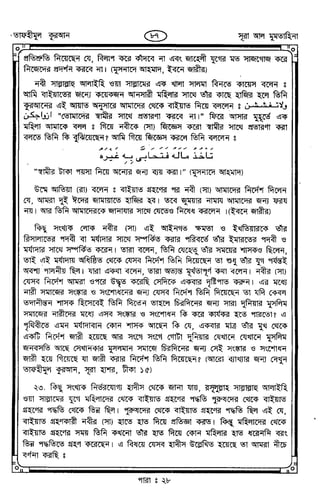 তাফহীমুল কুরআন
৮৭
সূরা আল মুমতাহিনা
প্রতিশ্রুতি নিয়েছেন যে, বিলাপ করে কাঁদবে না এবং জাহেলী যুগের মত সাজগোজ করে
নিজেদের প্রদর্শন করবে না। (মুসনাদে আহমাদ, ইবনে জারীর)
নবী সাল্লাল্লাহু আলাইহি ওয়া সাল্লামের এক খালা সালমা বিনতে কায়েস বলেন :
আমি বাইয়াতের জন্য কয়েকজন আনসারী মহিলার সাথে তাঁর কাছে হাজির হলে তিনি
কুরআনের এই আয়াত অনুসারে আমাদের থেকে বাইয়াত নিয়ে বললেন :
ولا تغششن ازواجكن "তোমাদের স্বামীর সাথে প্রতারণা করবে না।" ফিরে আসার মুহূর্তে এক
মহিলা আমাকে বলল : গিয়ে নবীকে (সা) জিজ্ঞেস করো স্বামীর সাথে প্রতারণা করা
বলতে তিনি কি বুঝিয়েছেন? আমি গিয়ে জিজ্ঞেস করলে তিনি বললেন :
تأخذ ماله فتحابى به غيره
"স্বামীর টাকা পয়সা নিয়ে অন্যের জন্য ব্যয় করা।" (মুসনাদে আহমাদ)
উম্মে আতিয়া (রা) বলেন : বাইয়াত গ্রহণের পর নবী (সা) আমাদের নির্দেশ দিলেন
যে, আমরা দুই ঈদের জামায়াতে হাজির হব। তবে জুময়ার নামায আমাদের জন্য ফরয
নয়। আর তিনি আমাদেরকে জানাযার সাথে যেতেও নিষেধ করলেন। (ইবনে জারীর)
কিছু সংখ্যক লোক নবীর (সা) এই আইনগত ক্ষমতা ও ইখতিয়ারকে তাঁর
রিসালাতের পদবী বা মর্যাদার সাথে সম্পর্কিত করার পরিবর্তে তাঁর ইমারতের পদবী ও
মর্যাদার সাথে সম্পর্কিত করেন। তারা বলেন, তিনি যেহেতু তাঁর সময়ের শাসকও ছিলেন,
তাই এই মর্যাদায় অধিষ্ঠিত থেকে যেসব নির্দেশ তিনি দিয়েছেন তা শুধু তাঁর যুগ পর্যন্তই
অবশ্য পালনীয় ছিল। যারা একথা বলেন, তারা অত্যন্ত মূর্খতাপূর্ণ কথা বলেন। নবীর (সা)
যেসব নির্দেশ আমরা ওপরে উদ্ধৃত করেছি সেদিকে একবার দৃষ্টিপাত করুন। এর মধ্যে
নারী সমাজের সংস্কার ও সংশোধনের জন্য যেসব নির্দেশ তিনি দিয়েছেন তা যদি কেবল
তদানীন্তন শাসক হিসেবেই তিনি দিতেন তাহলে চিরদিনের জন্য সারা দুনিয়ার মুসলিম
সমাজের নারীদের মধ্যে এসব সংস্কার ও সংশোধন কি করে কার্যকর হতে পারতো? এ
পৃথিবীতে এমন মর্যাদাবান কোন শাসক আছেন কি যে, একবার মাত্র তাঁর মুখ থেকে
একটি নির্দেশ জারী হয়েছে আর সংগে সংগে গোটা দুনিয়ার যেখানে যেখানে মুসলিম
জনবসতি আছে সেখানকার মুসলমান সমাজে চিরদিনের জন্য সেই সংস্কার ও সংশোধন
জারী হয়ে গিয়েছে যা জারী করার নির্দেশ তিনি দিয়েছেন? (আরো ব্যাখ্যার জন্য দেখুন
তাফহীমুল কুরআন, সূরা হাশর, টীকা ১৫)
২৩. কিছু সংখ্যক নির্ভরযোগ্য হাদীস থেকে জানা যায়, রসূলুল্লাহ সাল্লাল্লাহু আলাইহি
ওয়া সাল্লামের যুগে মহিলাদের থেকে বাইয়াত গ্রহণের পদ্ধতি পুরুষদের থেকে বাইয়াত
গ্রহণের পদ্ধতি থেকে ভিন্ন ছিল। পুরুষদের থেকে বাইয়াত গ্রহণের পদ্ধতি ছিল এই যে,
বাইয়াত গ্রহণকারী নবীর (সা) হাতে হাত দিয়ে প্রতিজ্ঞা করত। কিন্তু মহিলাদের থেকে
বাইয়াত গ্রহণের সময় তিনি কখনো তাঁর হাত দিয়ে কোন মহিলার হাত ধরেননি বরং
ভিন্ন পদ্ধতিতে গ্রহণ করেছেন। এ বিষয়ে যেসব হাদীস উল্লেখিত হয়েছে তা আমরা নীচে
বর্ণনা করছি :
পারা : ২৮